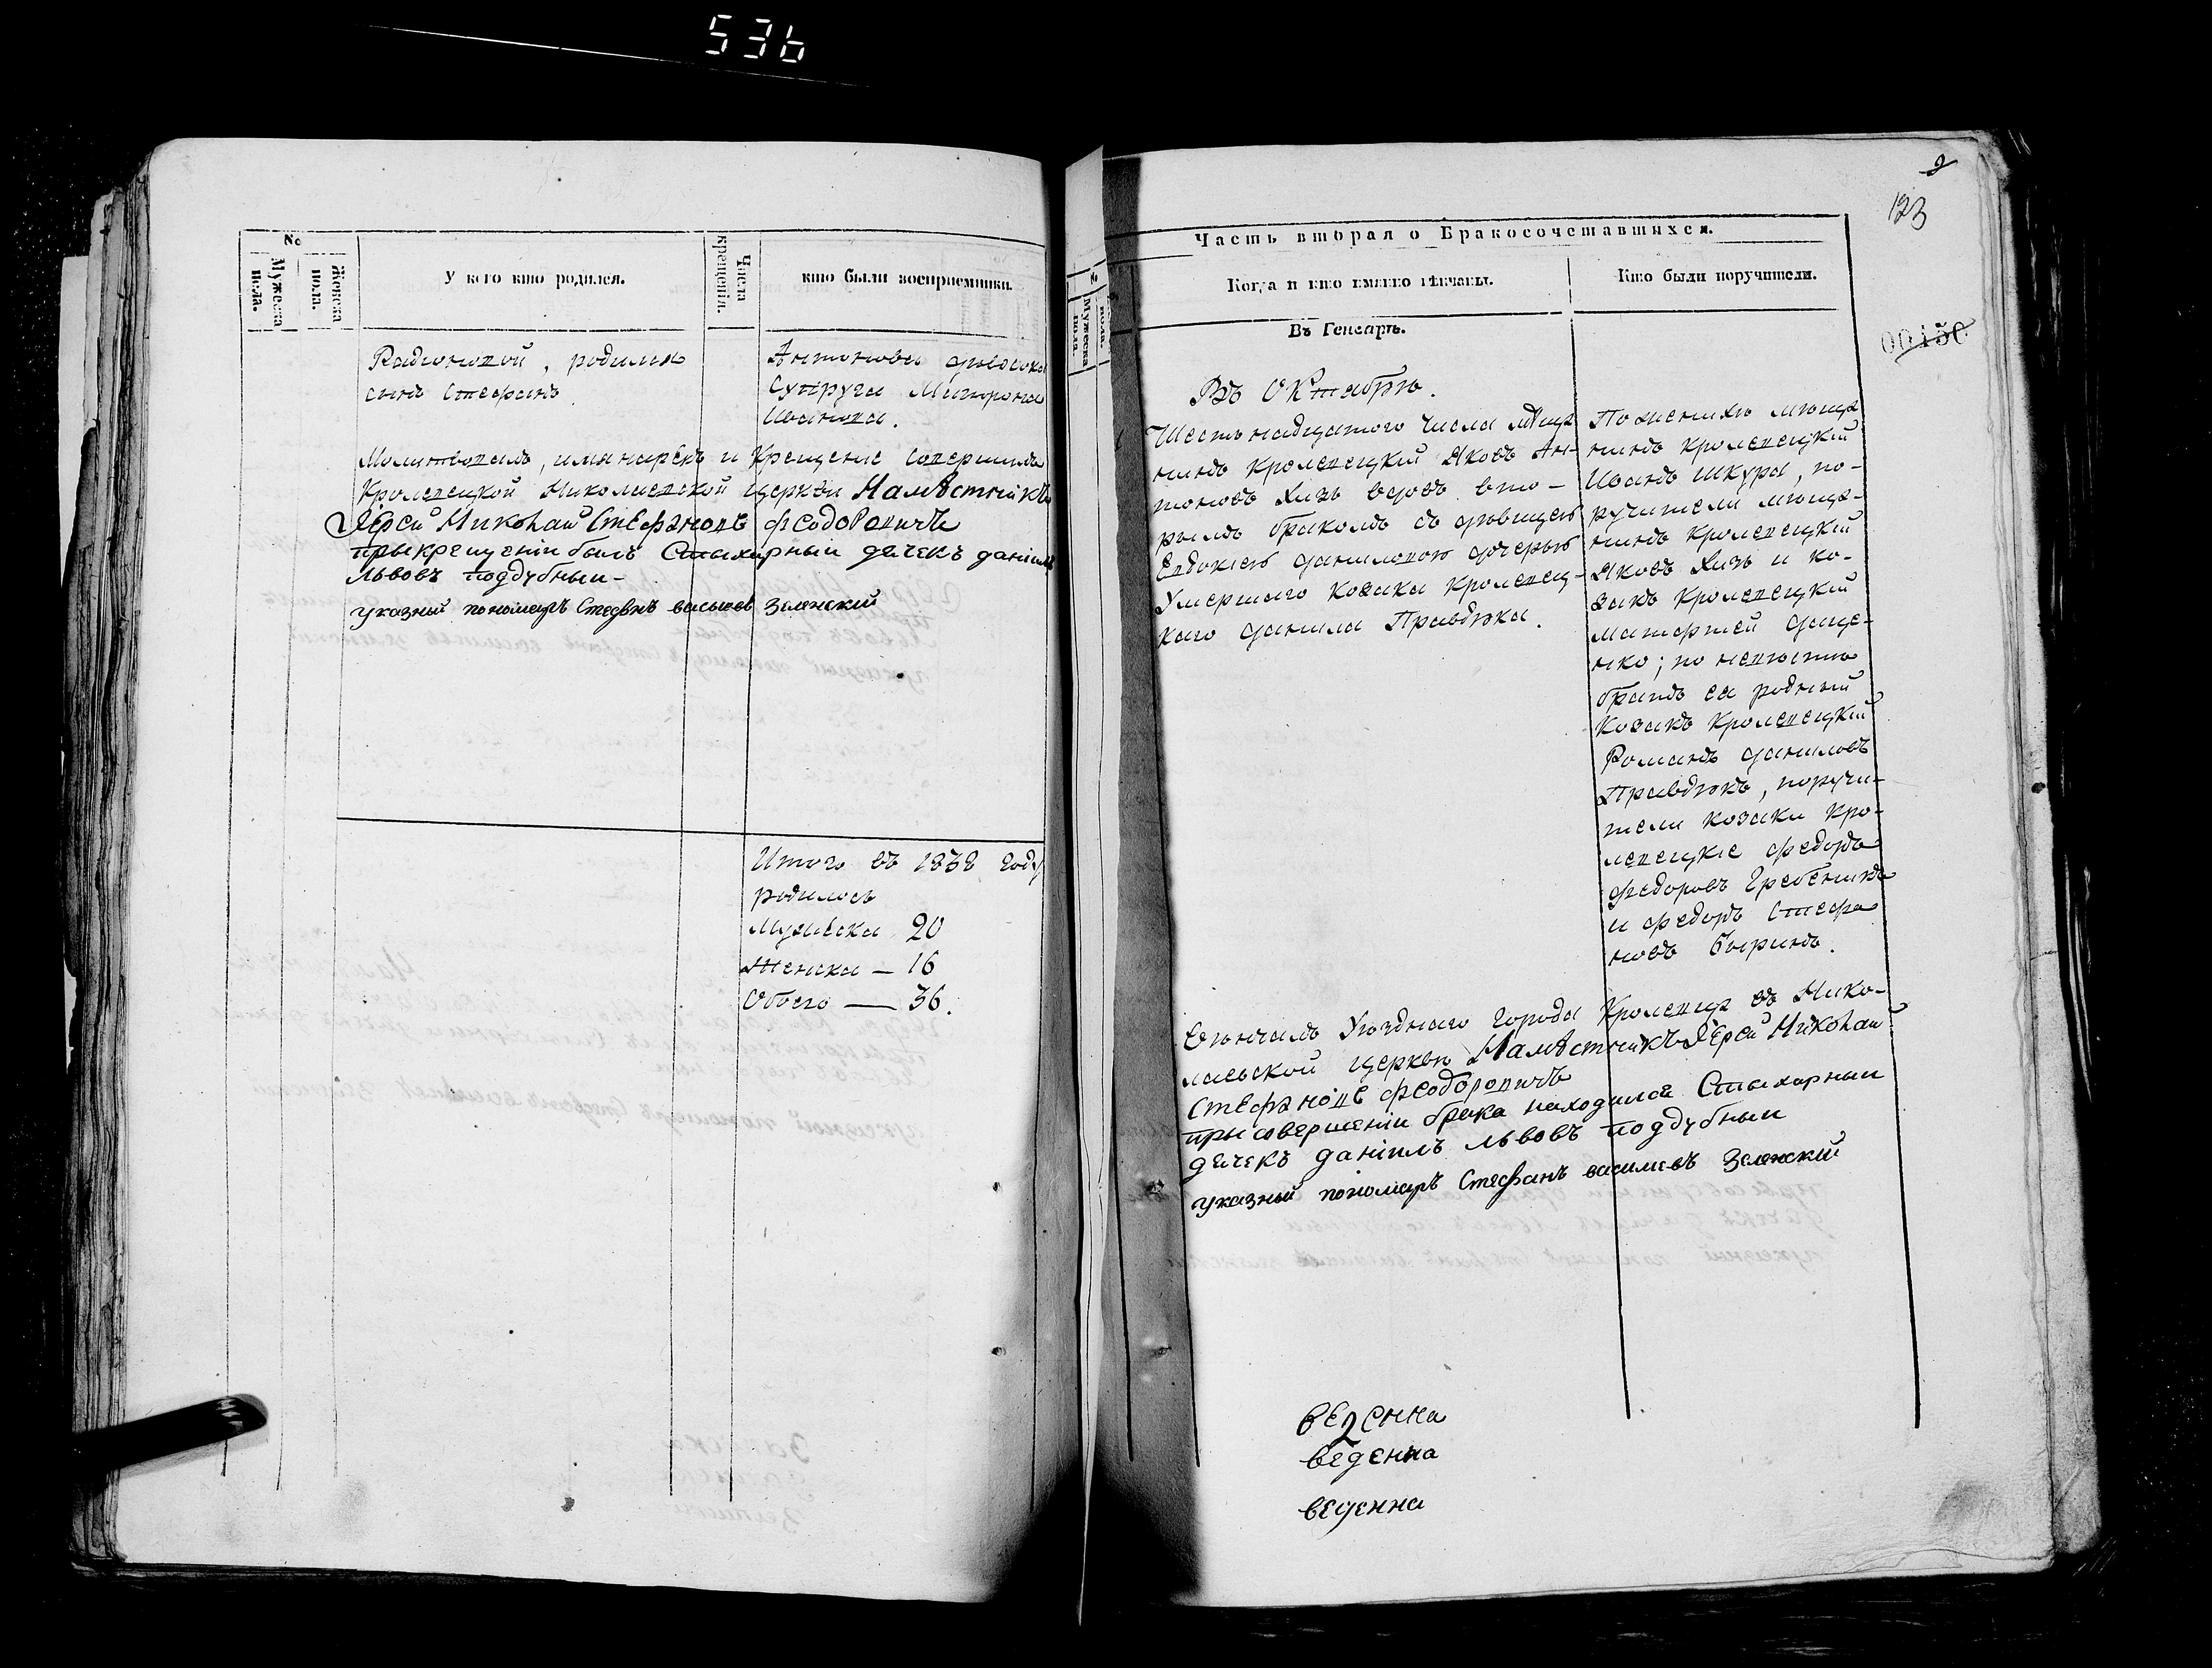 536
№
Мужеска пола.
Женска пола.
У кого кто родился.
Числа крещенія.
кто были восприемники.
Радионовой, родился
сынъ Стефанъ
Антонова
Супруга Матрона
Иванова.
Молитвовалъ, имя нарекъ и Крещение совершилъ
Кролевецкой Николаевской церкви Намѣстникъ
Іерей Николай Стефановъ Феодоровичъ
при крещеніи былъ Стихарный дячекъ даніилъ
львовъ поддубный-
указный пономаръ Стефанъ васильев Зеленский
Итого въ 1838 году
родилось
Мужеска 20
Женска — 16
Обоего — 36.
2
123
00150
Мужеска пола.
Часть вторая о Бракосочетавшихся.
Когда и кто именно вѣнчаны.
Кто были поручители.
Въ Генварѣ.
Въ Октабрѣ.
Шестьнадцатого числа мѣща
нинъ кролевецкий Яковъ Ан-
тоновъ Хизь вдовъ вто-
рымъ бракомъ съ дѣвицею
Евдокіею даниловою дочерью
Умершаго козака кролевец-
каго данила Правдюка.
По женихѣ мѣща
нинъ кролевецкий
Иванъ шкура, по-
ручители мѣща-
нинъ кролевецкий
Яковъ Хизь и ко-
закъ кролевецкий
матофтей даце-
нко; по невѣстѣ
братъ ея родный
Козакъ кролевецкий
Романъ даниловъ
Правдюкъ, поручи-
тели козаки кро-
левецкіе федоръ
федоровъ Гребеникъ
и федоръ Стефа
новъ Быринъ.
Вѣнчалъ Уѣзднаго города Кролевца въ Нико-
лаевской церкви Намѣстникъ Іерей Николай
Стефановъ Феодоровичъ
при совершеніи брака находился Стихарный
дячекъ даніилъ львовъ поддубный
указный пономаръ Стефанъ васильевъ Зеленский
веденна
веденна
веденна